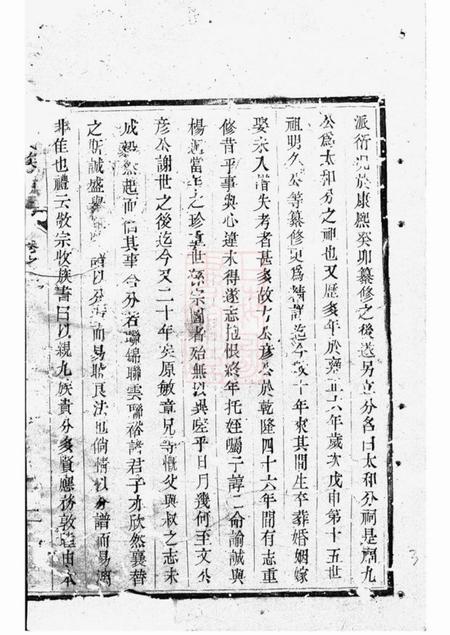 派衍 於康熙癸卯纂修之後迭另立分名曰太和分祠是爲九
公爲太和分之祖也又歷多年於雍正六年歲次戊申第十五世
祖明久公等纂修 爲精詳迄今 十年來其間生卒葬婚姻嫁
娶未入譜失考者甚多故 公彥公於乾隆四十六年間有志重
修昔乎事與心違未得遂志抱恨終年托姪囑子諄二命諭誠與
楊 當年之珍 世 宗圖者殆無以異嗟乎日月幾何至文公
彥公謝世之後迄今又二十年矣原敏章兄等慨父與叔之志未
成毅然起而任其事合分若 錦聯雲聯裕諸君子亦欣然襄替
之斯誠盛舉 以分 而易 良法也倘情以分譜而易
非佳也禮云敬宗收族書曰以親九族貴分多貴應務敦 由
3